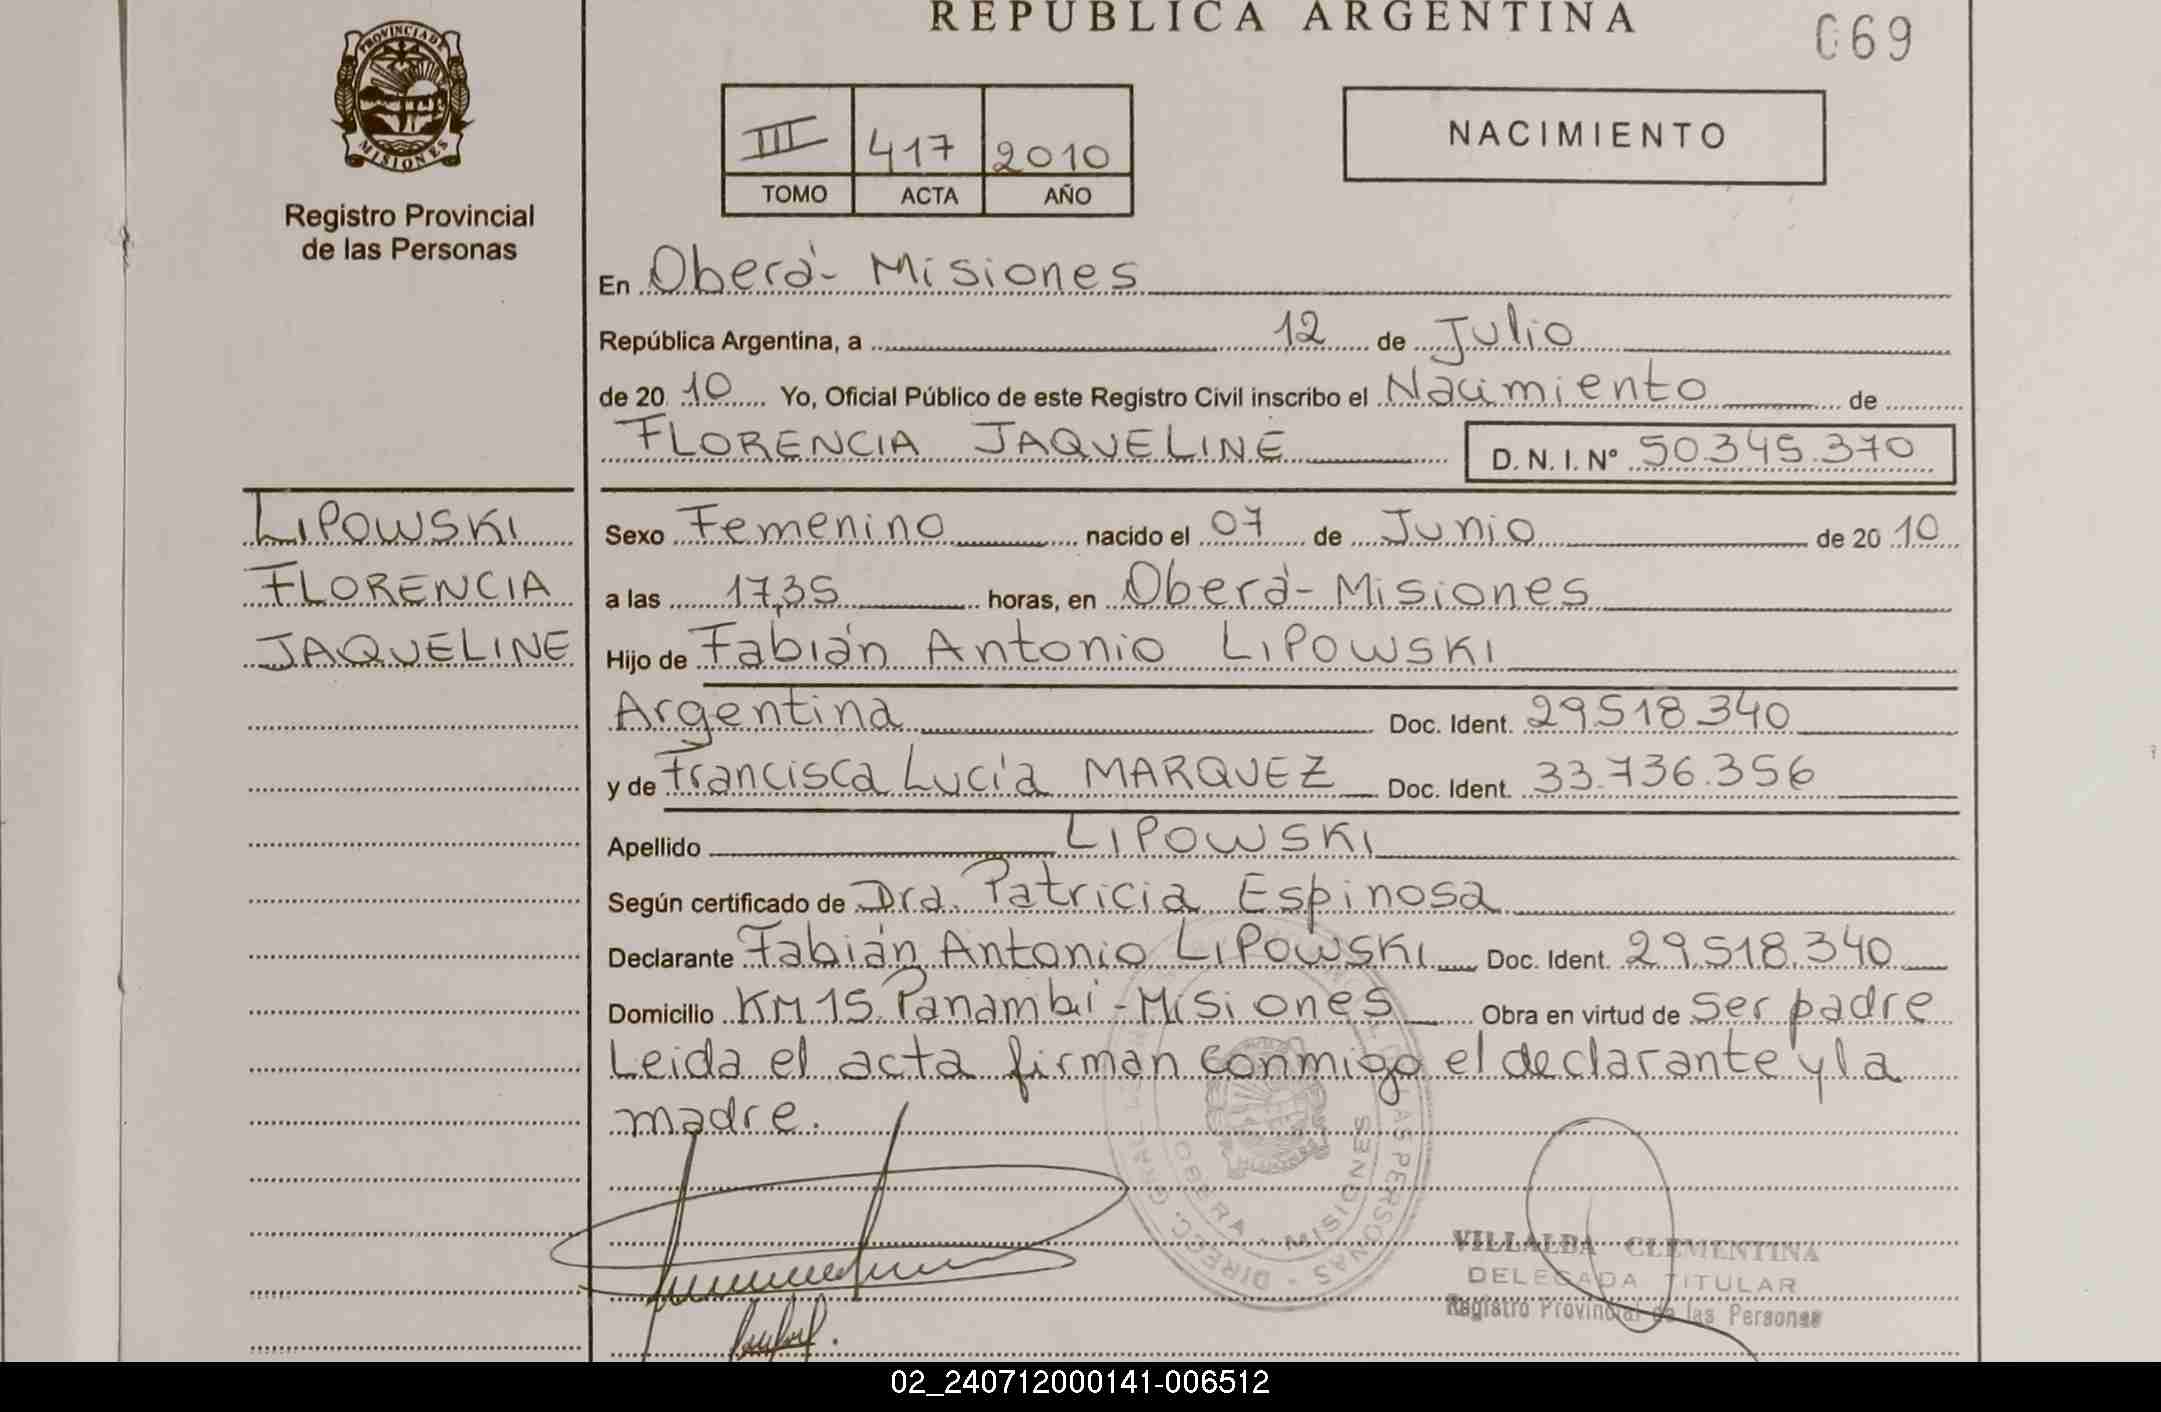 REPUBLICA ARGENTINA
069
PROVINCIA DE
MISIONES
Registro Provincial
de las Personas
III 417 2010
TOMO ACTA AÑO
NACIMIENTO
En Oberá - Misiones
República Argentina, a 12 de Julio
de 20 10 Yo, Oficial Público de este Registro Civil inscribo el Nacimiento de
FLORENCIA JAQUELINE D. N. I. Nº 50.345.370
LIPOWSKI
FLORENCIA
JAQUELINE
Sexo Femenino nacido el 07 de Junio de 20 10
a las 17,35 horas, en Oberá - Misiones
Hijo de Fabián Antonio LIPOWSKI
Argentina Doc. Ident. 29.518.340
y de Francisca Lucía MARQUEZ Doc. Ident. 33.736.356
Apellido LIPOWSKI
Según certificado de Dra. Patricia Espinosa
Declarante Fabián Antonio LIPOWSKI Doc. Ident. 29.518.340
Domicilio KM 15 Panambí - Misiones Obra en virtud de ser padre
Leida el acta firman conmigo el declarante y la
madre.
OBERA - MISIONES
VILLALBA CLEMENTINA
DELEGADA TITULAR
Registro Provincial de las Personas
02_240712000141-006512